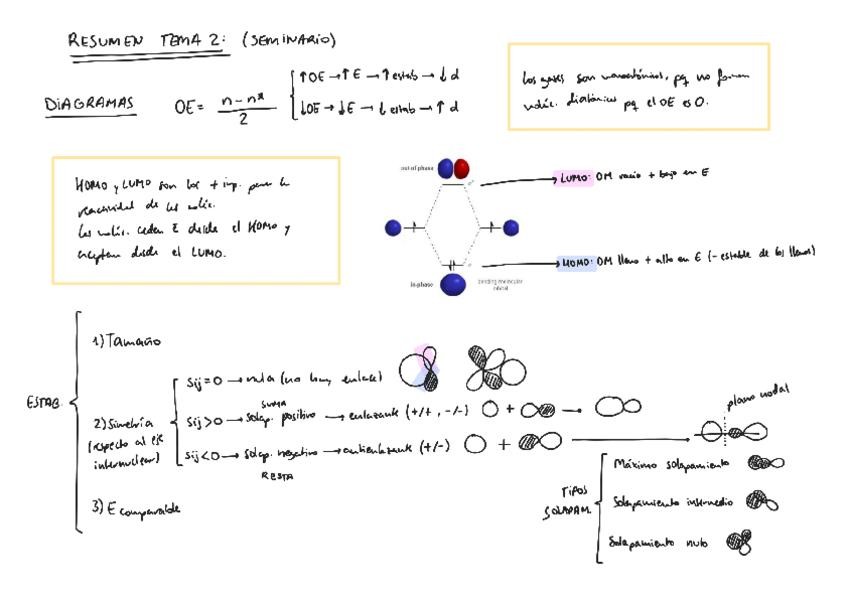 RESUMEN TEMA 2: (SEMINARIO)
DIAGRAMAS
OE = n - n* / 2
↑OE → ↑E → ↑estab → ↓d
↓OE → ↓E → ↓estab → ↑d
Los gases son monoatómicos, pq no forman
moléc. diatómicas pq el OE es 0.
HOMO y LUMO son los + imp. para la
reactividad de las moléc.
Las moléc. ceden E desde el HOMO y
aceptan desde el LUMO.
out-of-phase
LUMO: OM vacío + bajo en E
HOMO: OM lleno + alto en E (- estable de los llenos)
in-phase
bonding molecular
orbital
ESTAB.
1) Tamaño
2) Simetría
(respecto al eje
internuclear)
Sij = 0 → nula (no hay enlace)
SUMA
Sij > 0 → solap. positivo → enlazante (+/+, -/-)
Sij < 0 → solap. negativo → antienlazante (+/-)
RESTA
plano nodal
3) E comparable
TIPOS
SOLAPAM.
Máximo solapamiento
Solapamiento intermedio
Solapamiento nulo